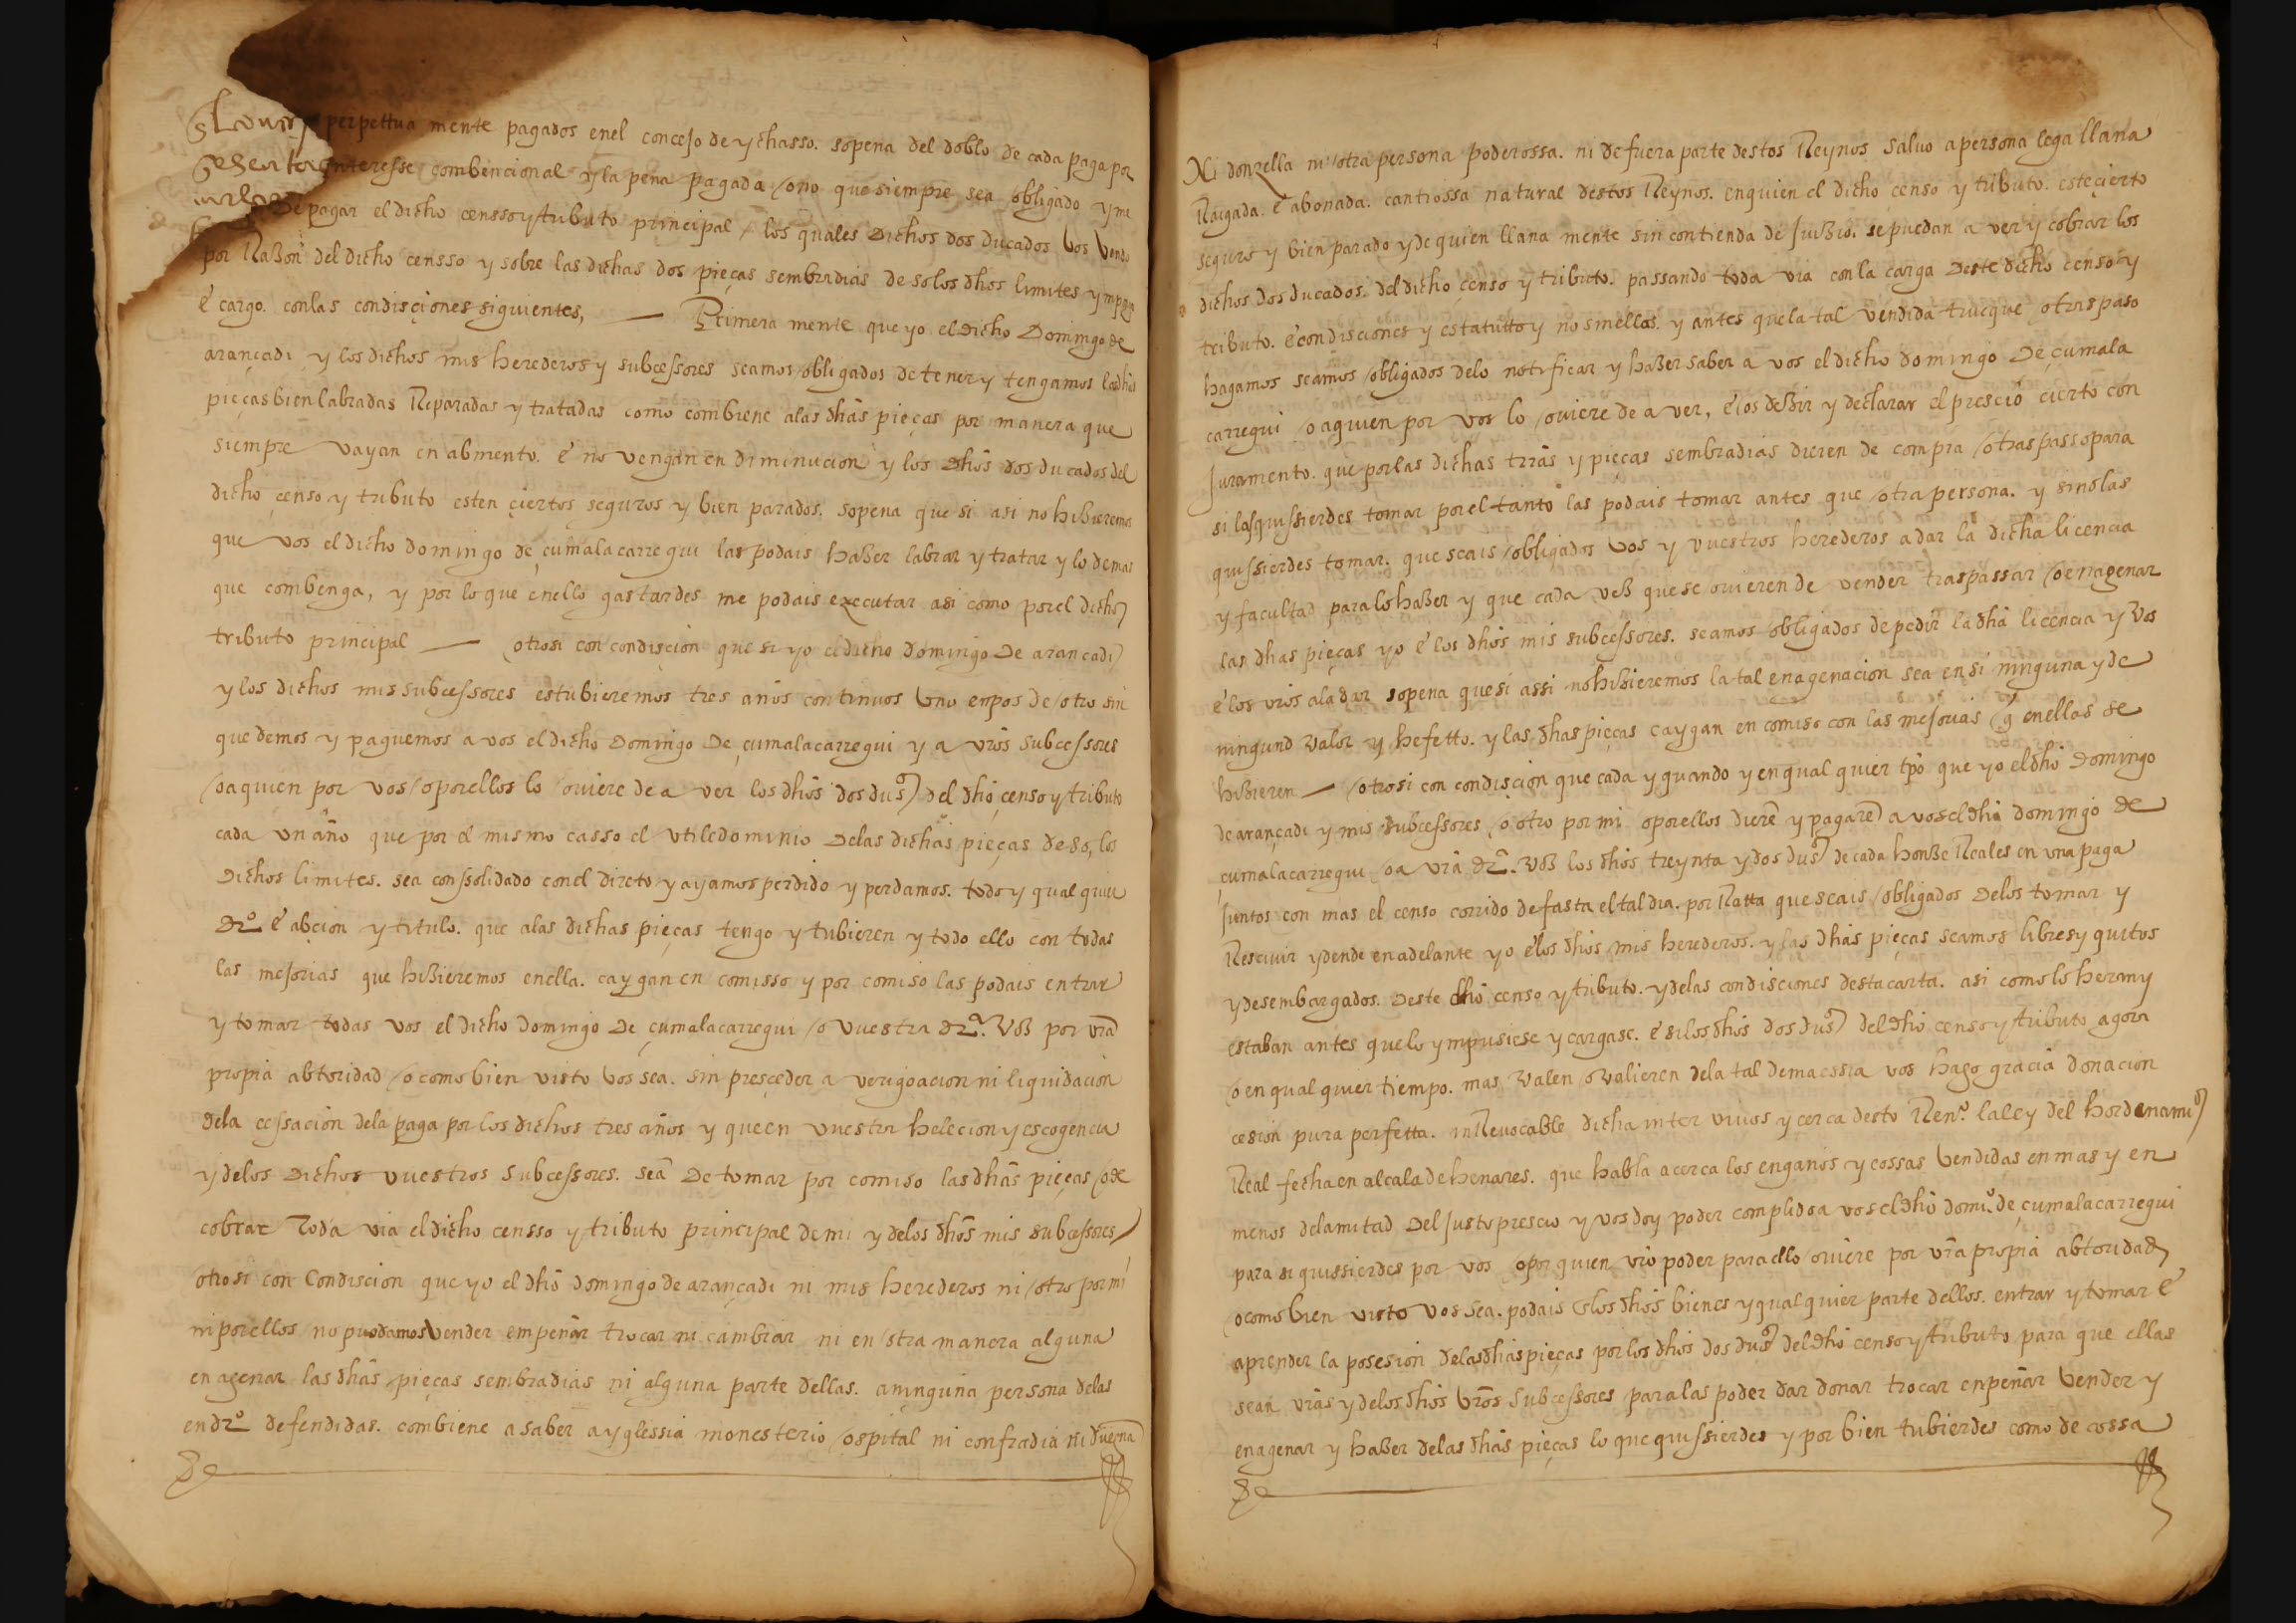 perpettua mente pagados enel concejo de ychasso. sopena del doblo de cada paga por
interesse combencional y la pena pagada /o no que siempre sea obligado y me
de pagar el dicho censso y tributo principal / los quales dichos dos ducados vos vendo
por Razon del dicho censso y sobre las dichas dos pieças sembradias de so los dhos limites y mpongo
é cargo. con las condisçiones siguientes, — Primera mente que yo el dicho Domingo de
arançadi y los dichos mis herederos y subcessores seamos obligados de tener y tengamos las dhas
pieças bien labradas Reparadas y tratadas como combiene a las dhas pieças por manera que
siempre vayan en abmento. é no vengan en diminucion y los dhos dos ducados del
dicho çenso y tributo esten çiertos seguros y bien parados. sopena que si asi no hizieremos
que vos el dicho domingo de çumalacarregui las podais hazer labrar y tratar y lo demas
que combenga, y por lo que enello gastardes me podais executar asi como por el dicho
tributo principal — otrosi con condisçion que si yo el dicho domingo De arancadi
y los dichos mis subcessores estubieremos tres años continuos Uno enpos de /otro sin
que demos y paguemos a vos el dicho Domingo De çumalacarregui y a vros subcessores
/o a quien por vos /o por ellos lo /oviere de a ver los dhos dos dus del dho çenso y tributo
cada un año que por el mismo casso el vtile dominio Delas dichas pieças de so los
Dichos limites. sea conssolidado con el direto y ayamos perdido y perdamos. todo y qual quier
dro é abçion y titulo. que a las dichas pieças tengo y tubieren y todo ello con todas
las mejorias que hizieremos enella. caygan en comisso y por comiso las podais entrar
y tomar todas vos el dicho domingo De çumalacarregui /o vuestra dra. voz por vra
propia abtoridad /o como bien visto vos sea. sin presçeder a verigoacion ni liquidacion
dela cessacion dela paga por los dichos tres años y que en vuestra helecion y escogencia
y delos Dichos vuestros subcessores. sea De tomar por comiso las dhas pieças /o de
cobrar Toda via el dicho censso y tributo principal de mi y delos dhos mis subcessores
otrosi con Condiscion que yo el dho domingo de arançadi ni mis herederos ni /otro por mi
ni por ellos no puodamos vender empeñar trocar ni cambiar ni en /otra manera alguna
en agenar las dhas pieças sembradias ni alguna parte dellas. a ninguna persona delas
en dro defendidas. combiene a saber a yglessia monesterio /ospital ni confradia ni dueña
Ni donzella ni /otra persona poderossa. ni de fuera parte destos Reynos salvo a persona lega llana
Raigada. é abonada. cantiossa natural destos Reynos. en quien el dicho censo y tributo. este çierto
seguro y bien parado y de quien llana mente sin contienda de juizio. se puedan a ver y cobrar los
dichos dos ducados. del dicho çenso y tributo. passando toda via con la carga Deste dicho censo y
tributo. é condisciones y estatutto y no sin ellos. y antes que la tal vendida trueque /o traspaso
hagamos seamos /obligados delo notificar y hazer saber a vos el dicho domingo De çumala
carregui /o a quien por vos lo /oviere de a ver, é los dezir y declarar el prescio cierto con
juramento. que por las dichas trras y pieças sembradias dieren de compra /o traspasso para
si las quissierdes tomar por el tanto las podais tomar antes que /otra persona. y si no las
quissierdes tomar. que seais /obligados vos y vuestros herederos a dar la dicha licencia
y facultad para lo hazer y que cada vez que se ovieren de vender traspassar /o enagenar
las dhas pieças yo é los dhos mis subcessores. seamos /obligados de pedir la dha licencia y vos
é los vros a la dar sopena que si assi no hizieremos la tal enagenacion sea en si ninguna y de
ningund valor y hefetto. y las dhas pieças caygan en comiso con las mejorias q enellas se
hizieren — /otrosi con condisçion que cada y quando y en qual quier tpo que yo el dho Domingo
de arançadi y mis subcessores /o otro por mi o por ellos diere y pagare a vos el dho domingo de
çumalacarregui /o a vra dra. voz los dhos treynta y dos dus de cada honze Reales en una paga
juntos con mas el censo corrido de fasta el tal dia. por Ratta que seais /obligados Delos tomar y
Rescivir y dende en adelante yo é los dhos mis herederos. y las dhas pieças seamos libres y quitos
y desembargados. Deste dho censo y tributo. y delas condisciones desta carta. asi como lo heramos y
estaban antes que lo ympusiese y cargase. é si los dhos dos dus del dho censo y tributo agora
/o en qual quier tiempo. mas valen /o valieren dela tal demacssia vos hago gracia donacion
cesion pura perfetta. inRevocable dicha inter vivos y cerca desto Renº. la ley del hordenamiº
Real fecha en alcala de henares. que habla acerca los engaños y cossas vendidas en mas y en
menos dela mitad Del justo prescio y vos doy poder complido a vos el dho domiº. de çumalacarregui
para si quissierdes por vos /o por quien vro poder para ello /oviere por vra propia abtoridad
/o como bien visto vos sea. podais los dhos bienes y qual quier parte dellos. entrar y tomar é
aprender la posesion delas dhas pieças por los dhos dos dus del dho censo y tributo para que ellas
sean vras y delos dhos vros subcessores para las poder dar donar trocar enpeñar vender y
enagenar y hazer delas dhas pieças lo que quissierdes y por bien tubierdes como de cossa